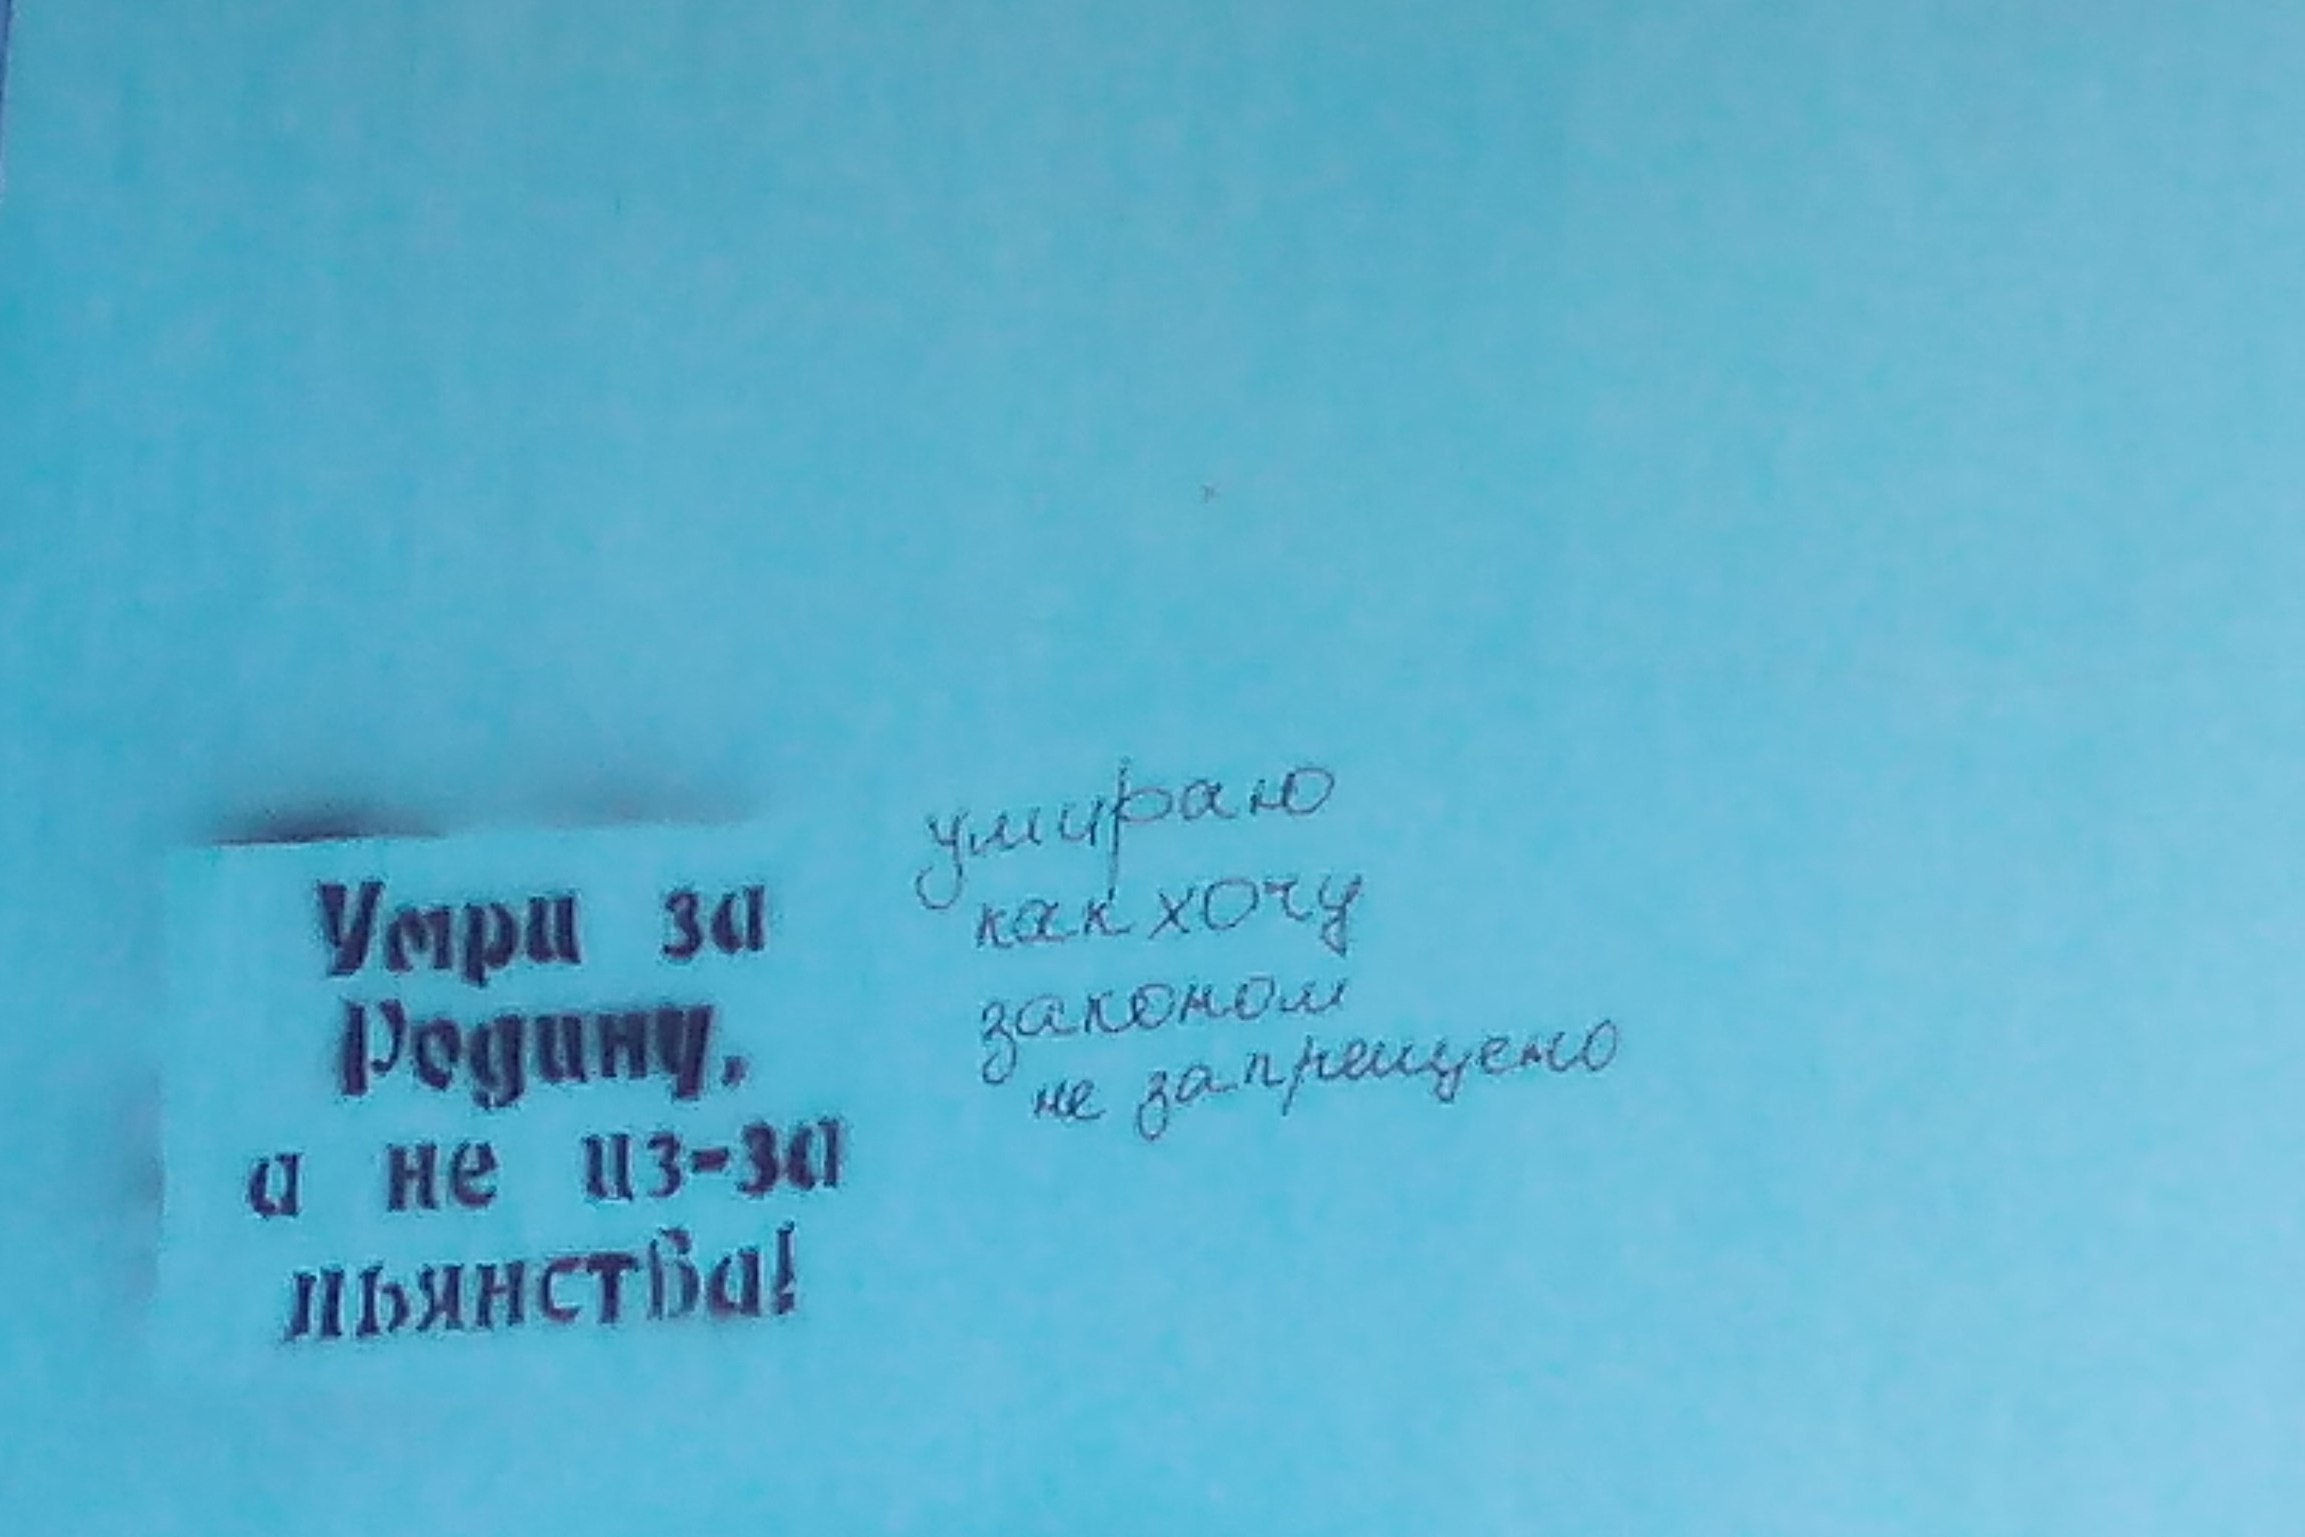 Умри за
Родину,
а не из-за
пьянства!
умираю
как хочу
законом
не запрещено